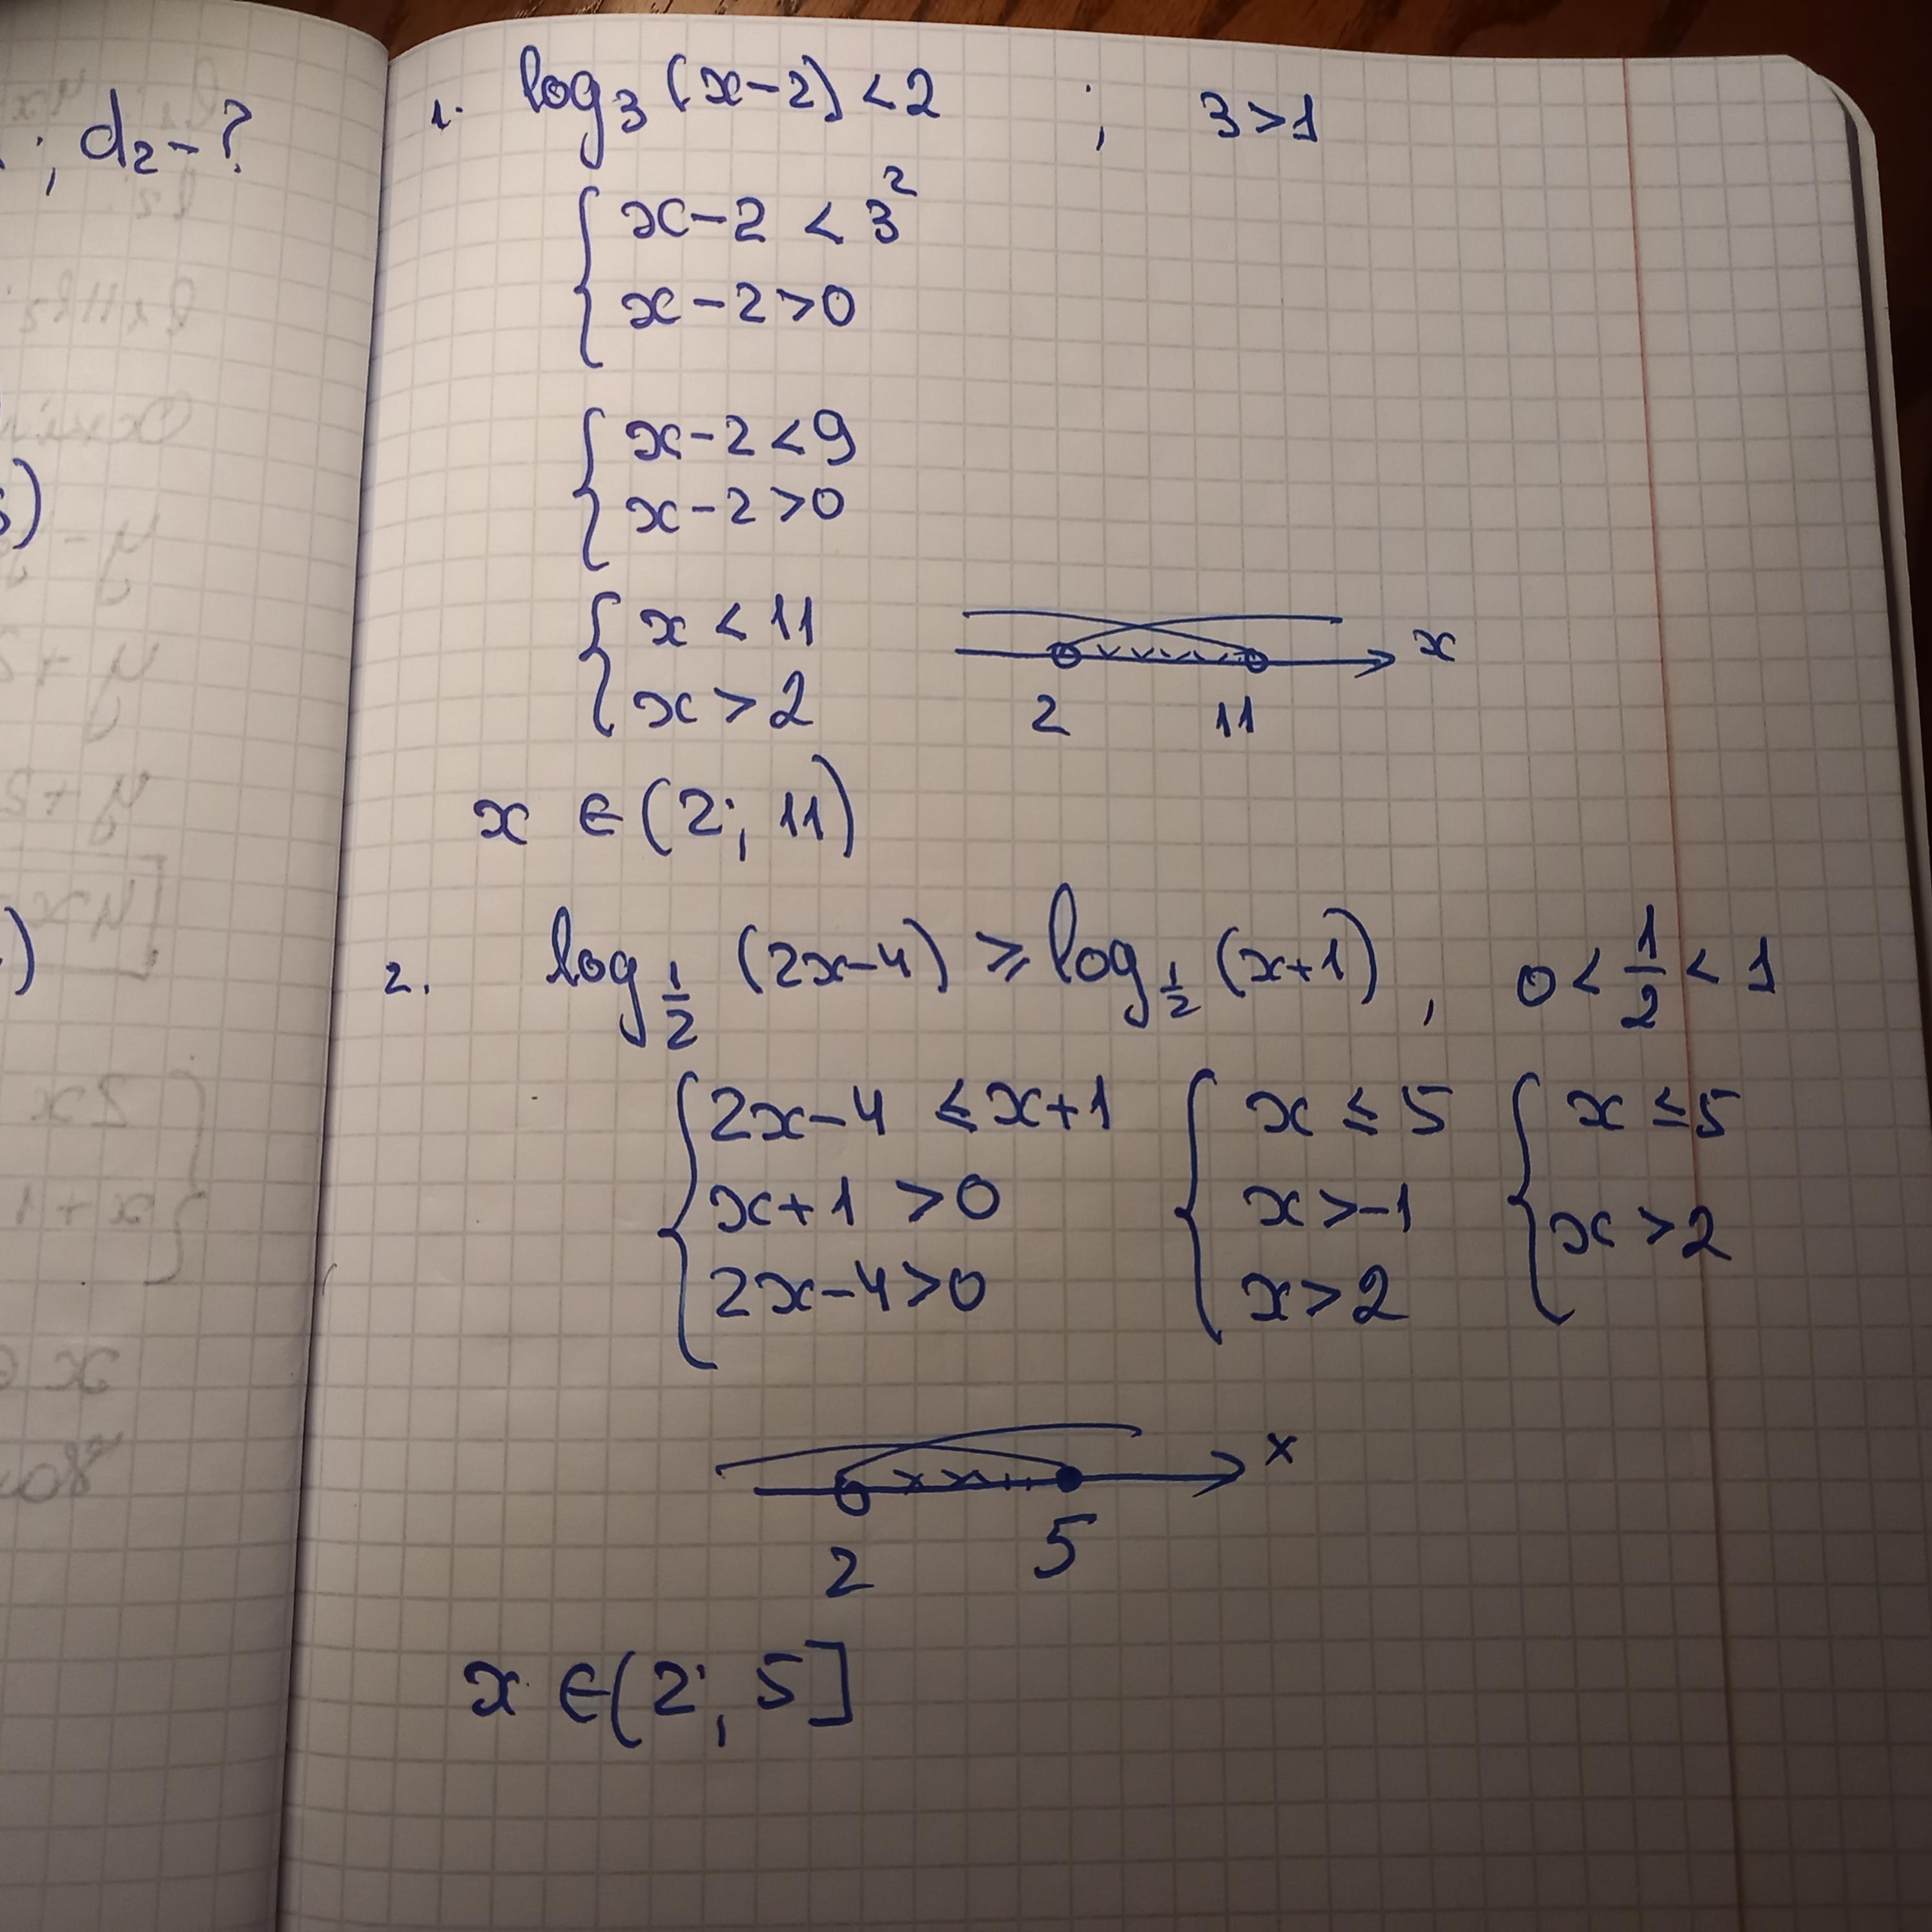 ; d₂ - ?
1. log₃ (x-2) < 2 ; 3 > 1
{ x-2 < 3²
x-2 > 0
{ x-2 < 9
x-2 > 0
{ x < 11
x > 2
x
2 11
x ∈ (2; 11)
2. log_{1/2} (2x-4) ⩾ log_{1/2} (x+1), 0 < 1/2 < 1
{ 2x-4 ⩽ x+1 { x ⩽ 5 { x ⩽ 5
x+1 > 0 x > -1 x > 2
2x-4 > 0 x > 2
x
2 5
x ∈ (2; 5]